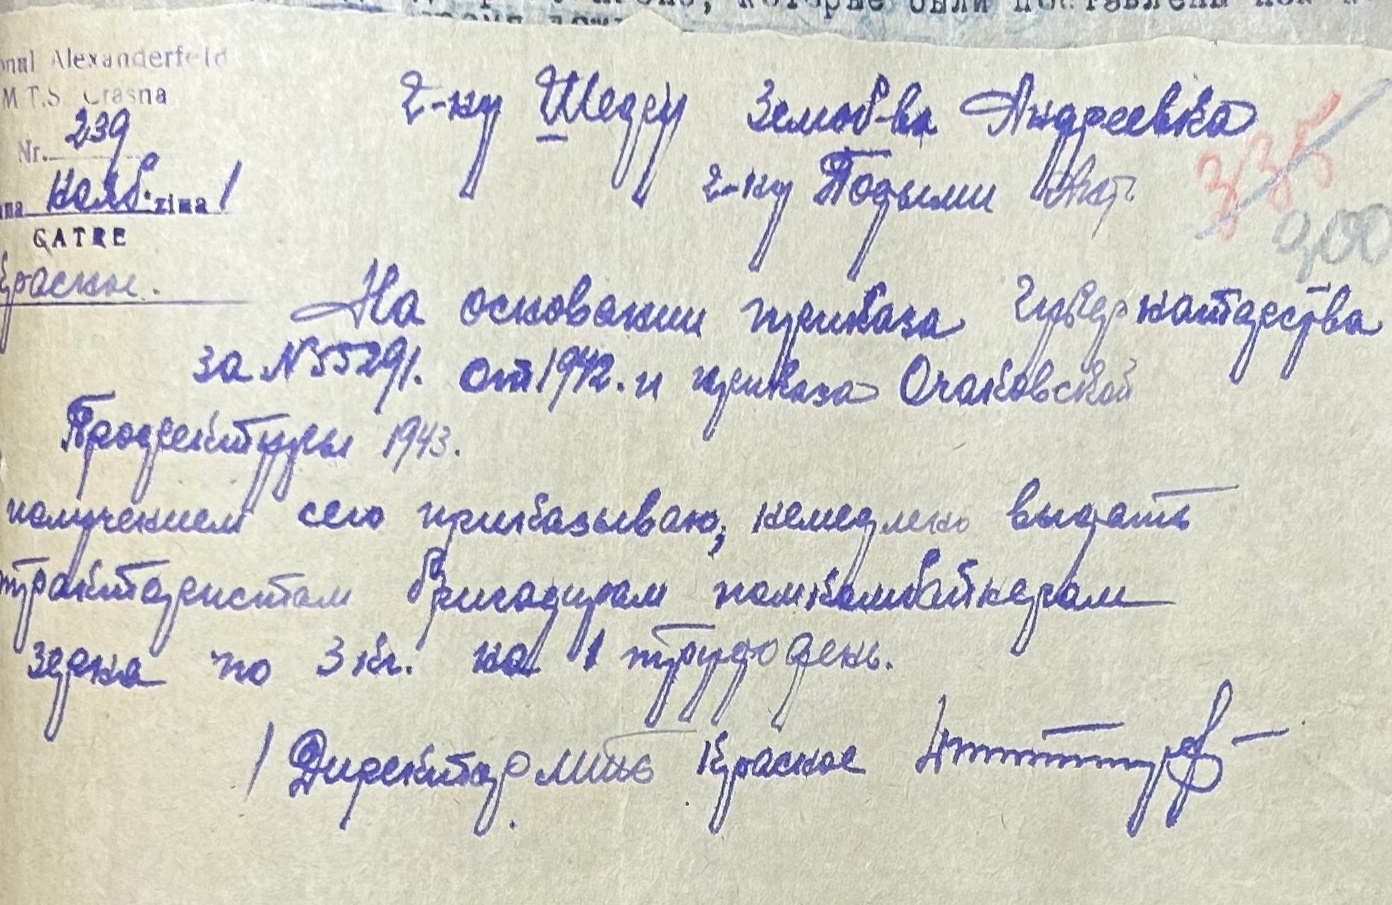 которые были поставлены
onal Alexanderfeld
M.T.S. Crasna
Nr. 239
нояб. ziua 1
CATRE
Красное.
335
900
г-ку Шефу Земоб-ва Андреевка
г-ку Подыми
На основании приказа Губернаторства
за N 55291. от 1942. и приказа Очаковской
Профектуры 1943.
получением сего приказываю, немедлено выдать
трактористам бригадирам помкомбайнерам
зерна по 3 кг. на 1 трудодень.
Директор мтс Красное